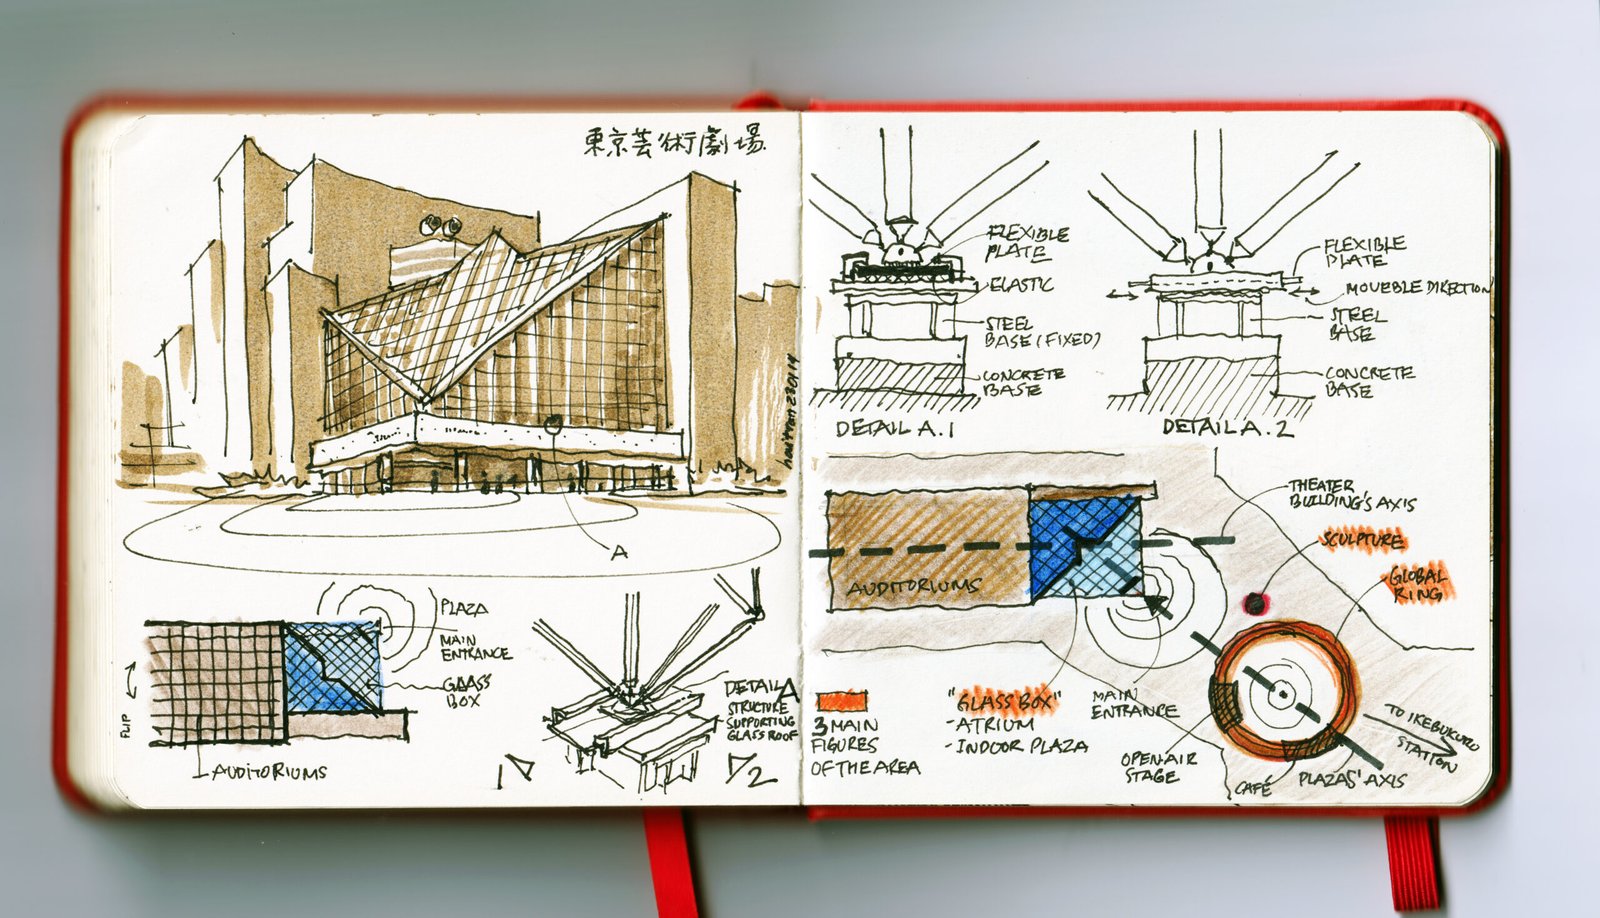 東京芸術劇場
A
PLAZA
MAIN
ENTRANCE
GLASS
BOX
FLIP
AUDITORIUMS
DETAIL A
STRUCTURE
SUPPORTING
GLASS ROOF
1
2
FLEXIBLE
PLATE
ELASTIC
STEEL
BASE (FIXED)
CONCRETE
BASE
DETAIL A.1
FLEXIBLE
PLATE
MOVEBLE DIRECTION
STEEL
BASE
CONCRETE
BASE
DETAIL A.2
THEATER
BUILDING'S AXIS
SCULPTURE
GLOBAL
RING
AUDITORIUMS
3 MAIN
FIGURES
OF THE AREA
"GLASS BOX"
- ATRIUM
- INDOOR PLAZA
MAIN
ENTRANCE
OPEN AIR
STAGE
CAFÉ
PLAZAS' AXIS
TO IKEBUKURO
STATION